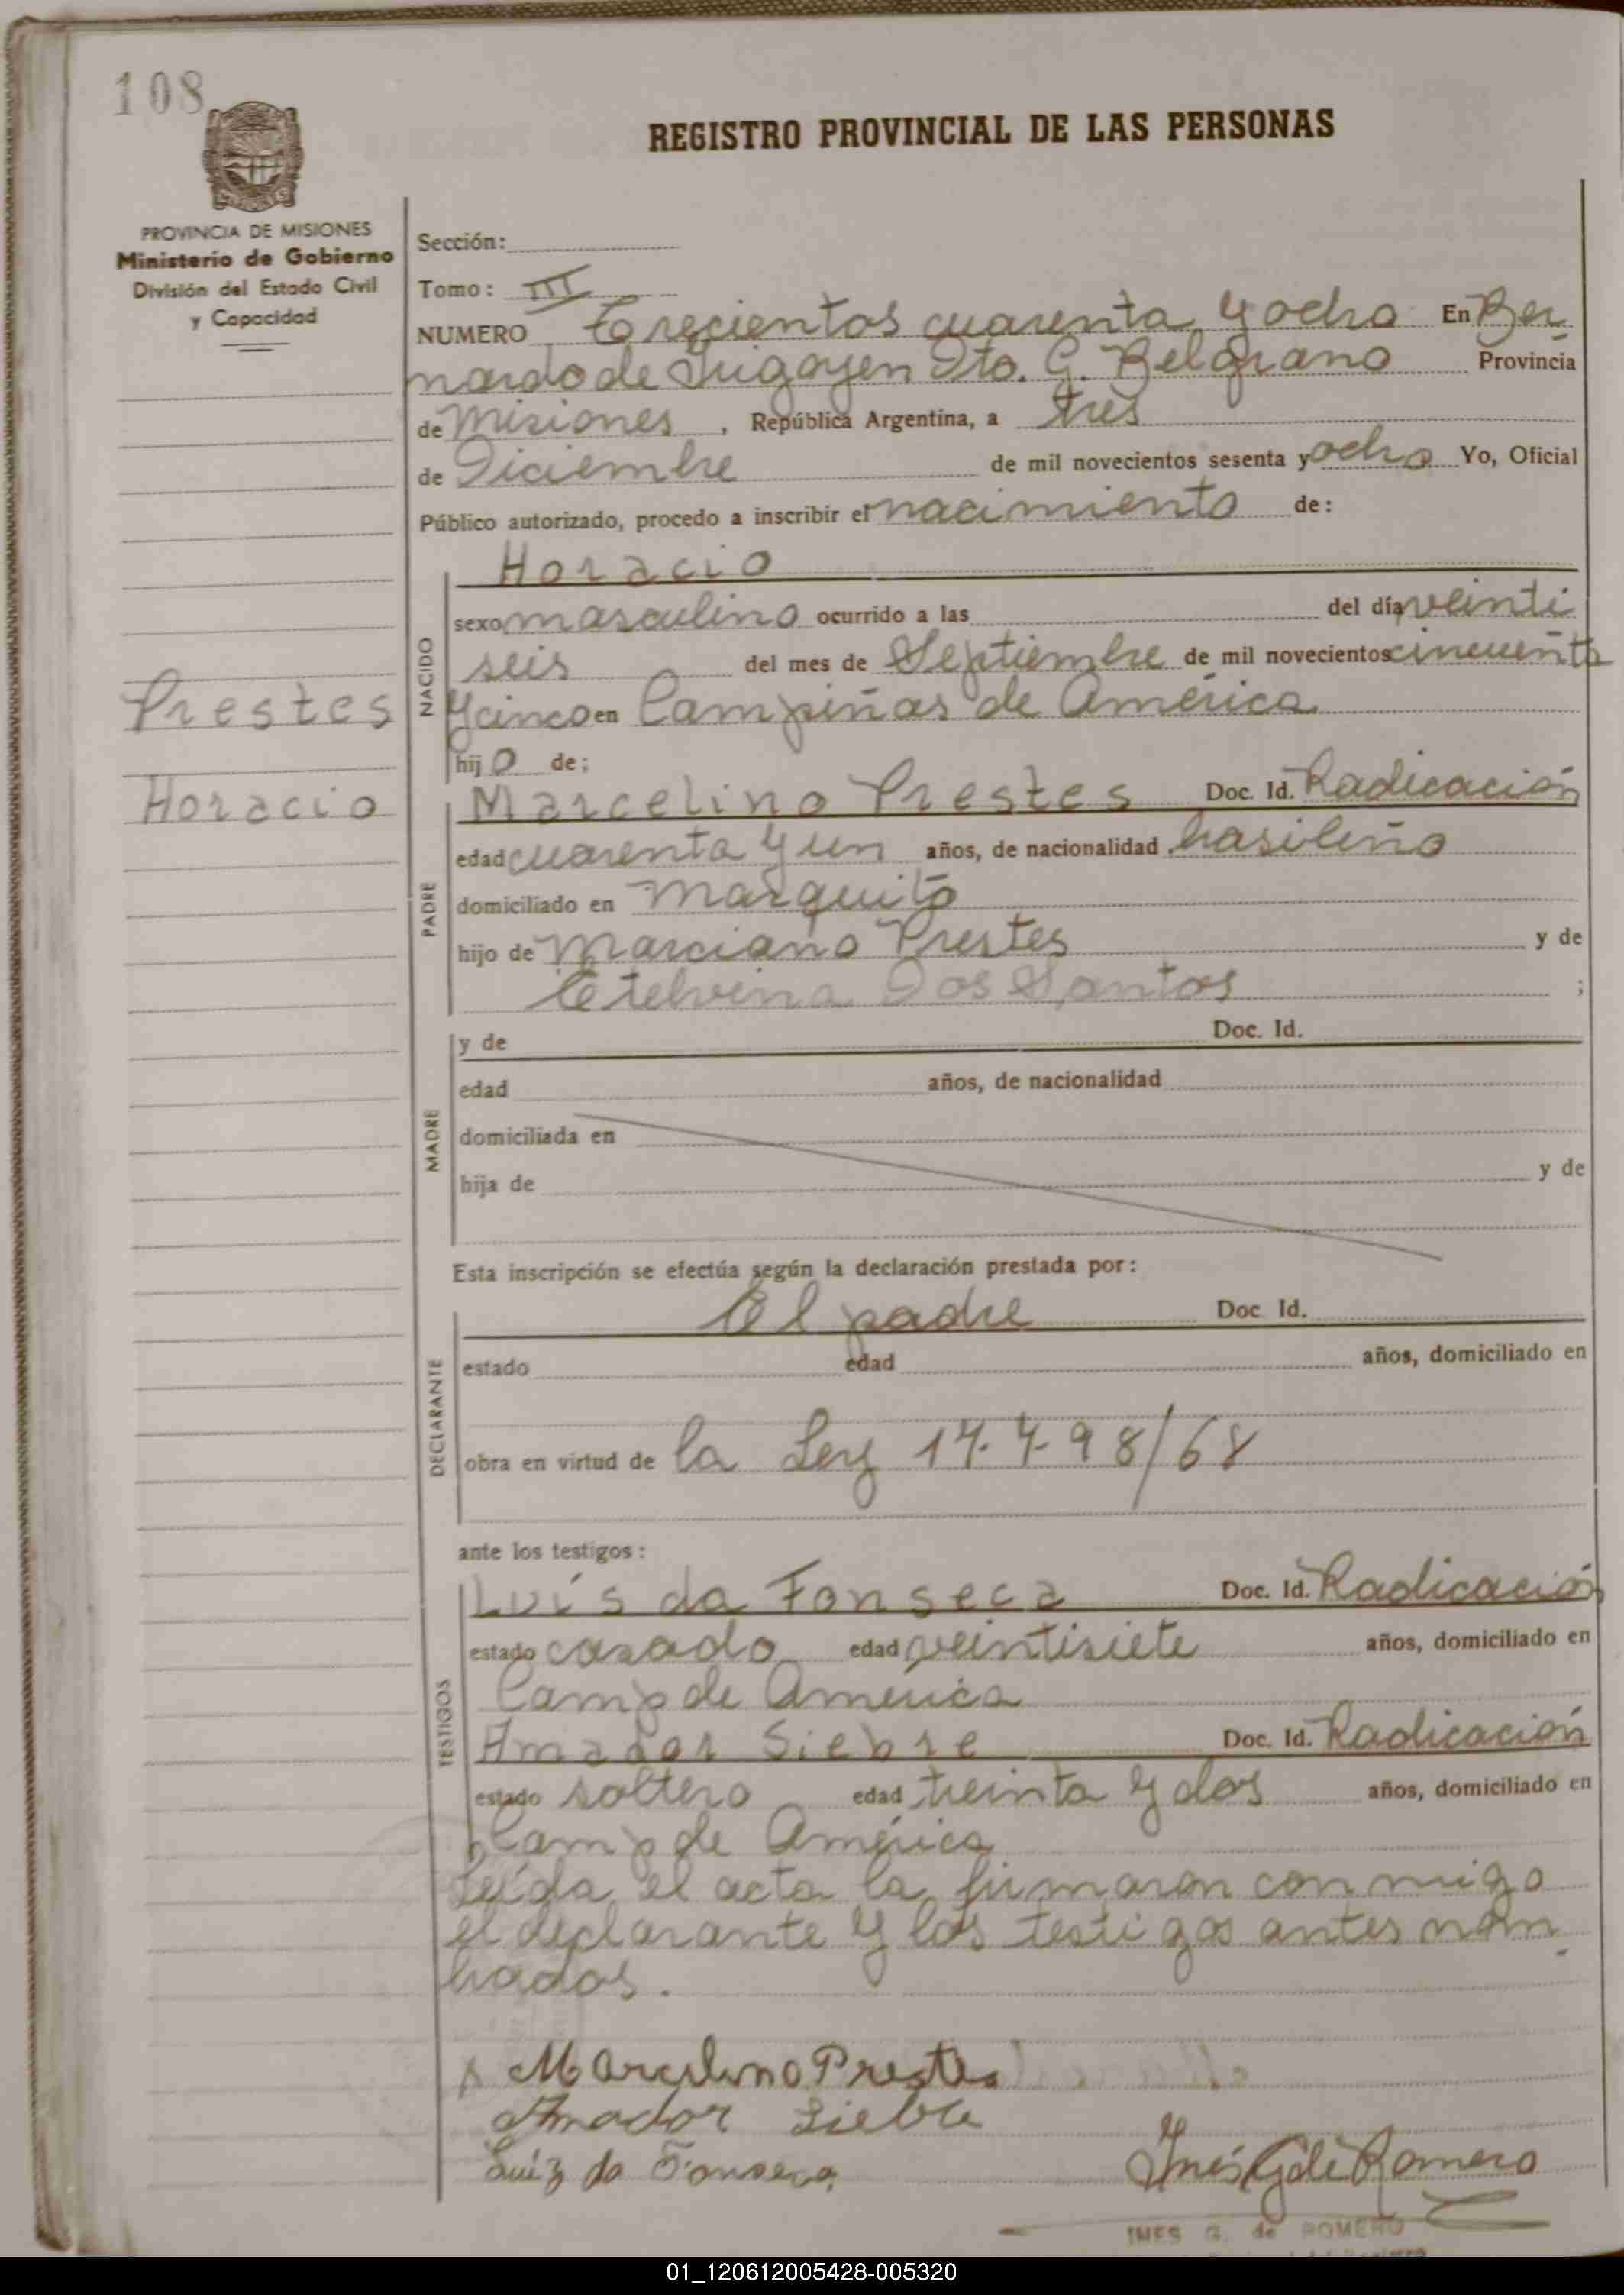 108
REGISTRO PROVINCIAL DE LAS PERSONAS
PROVINCIA DE MISIONES
Ministerio de Gobierno
División del Estado Civil
y Capacidad
Prestes
Horacio
Sección:
Tomo: III
NUMERO Trecientos cuarenta y ocho En Ber
nardo de Irigoyen Dto. G. Belgrano Provincia
de Misiones, República Argentina, a tres
de Diciembre de mil novecientos sesenta y ocho Yo, Oficial
Público autorizado, procedo a inscribir el nacimiento de:
Horacio
NACIDO
sexo masculino ocurrido a las del día veinti
seis del mes de Septiembre de mil novecientos cincuenta
y cinco en Campiñas de América
hijo de:
PADRE
Marcelino Prestes Doc. Id. Radicación
edad cuarenta y un años, de nacionalidad brasileño
domiciliado en Marquito
hijo de Marciano Prestes y de
Etelvina Dos Santos ;
MADRE
y de Doc. Id.
edad años, de nacionalidad
domiciliada en
hija de y de
Esta inscripción se efectúa según la declaración prestada por:
DECLARANTE
El padre Doc. Id.
estado edad años, domiciliado en
obra en virtud de la Ley 17.798/68
ante los testigos:
TESTIGOS
Luís da Fonseca Doc. Id. Radicación
estado casado edad veintisiete años, domiciliado en
Camp de America
Amador Siebre Doc. Id. Radicación
estado soltero edad treinta y dos años, domiciliado en
Camp de América
Leída el acta la firmaron conmigo
el declarante y los testigos antes nom
brados.
Marcelino Prestes
Amador Siebre
Luiz da Fonseca
Inés G de Romero
INES G. de ROMERO
01_120612005428-005320